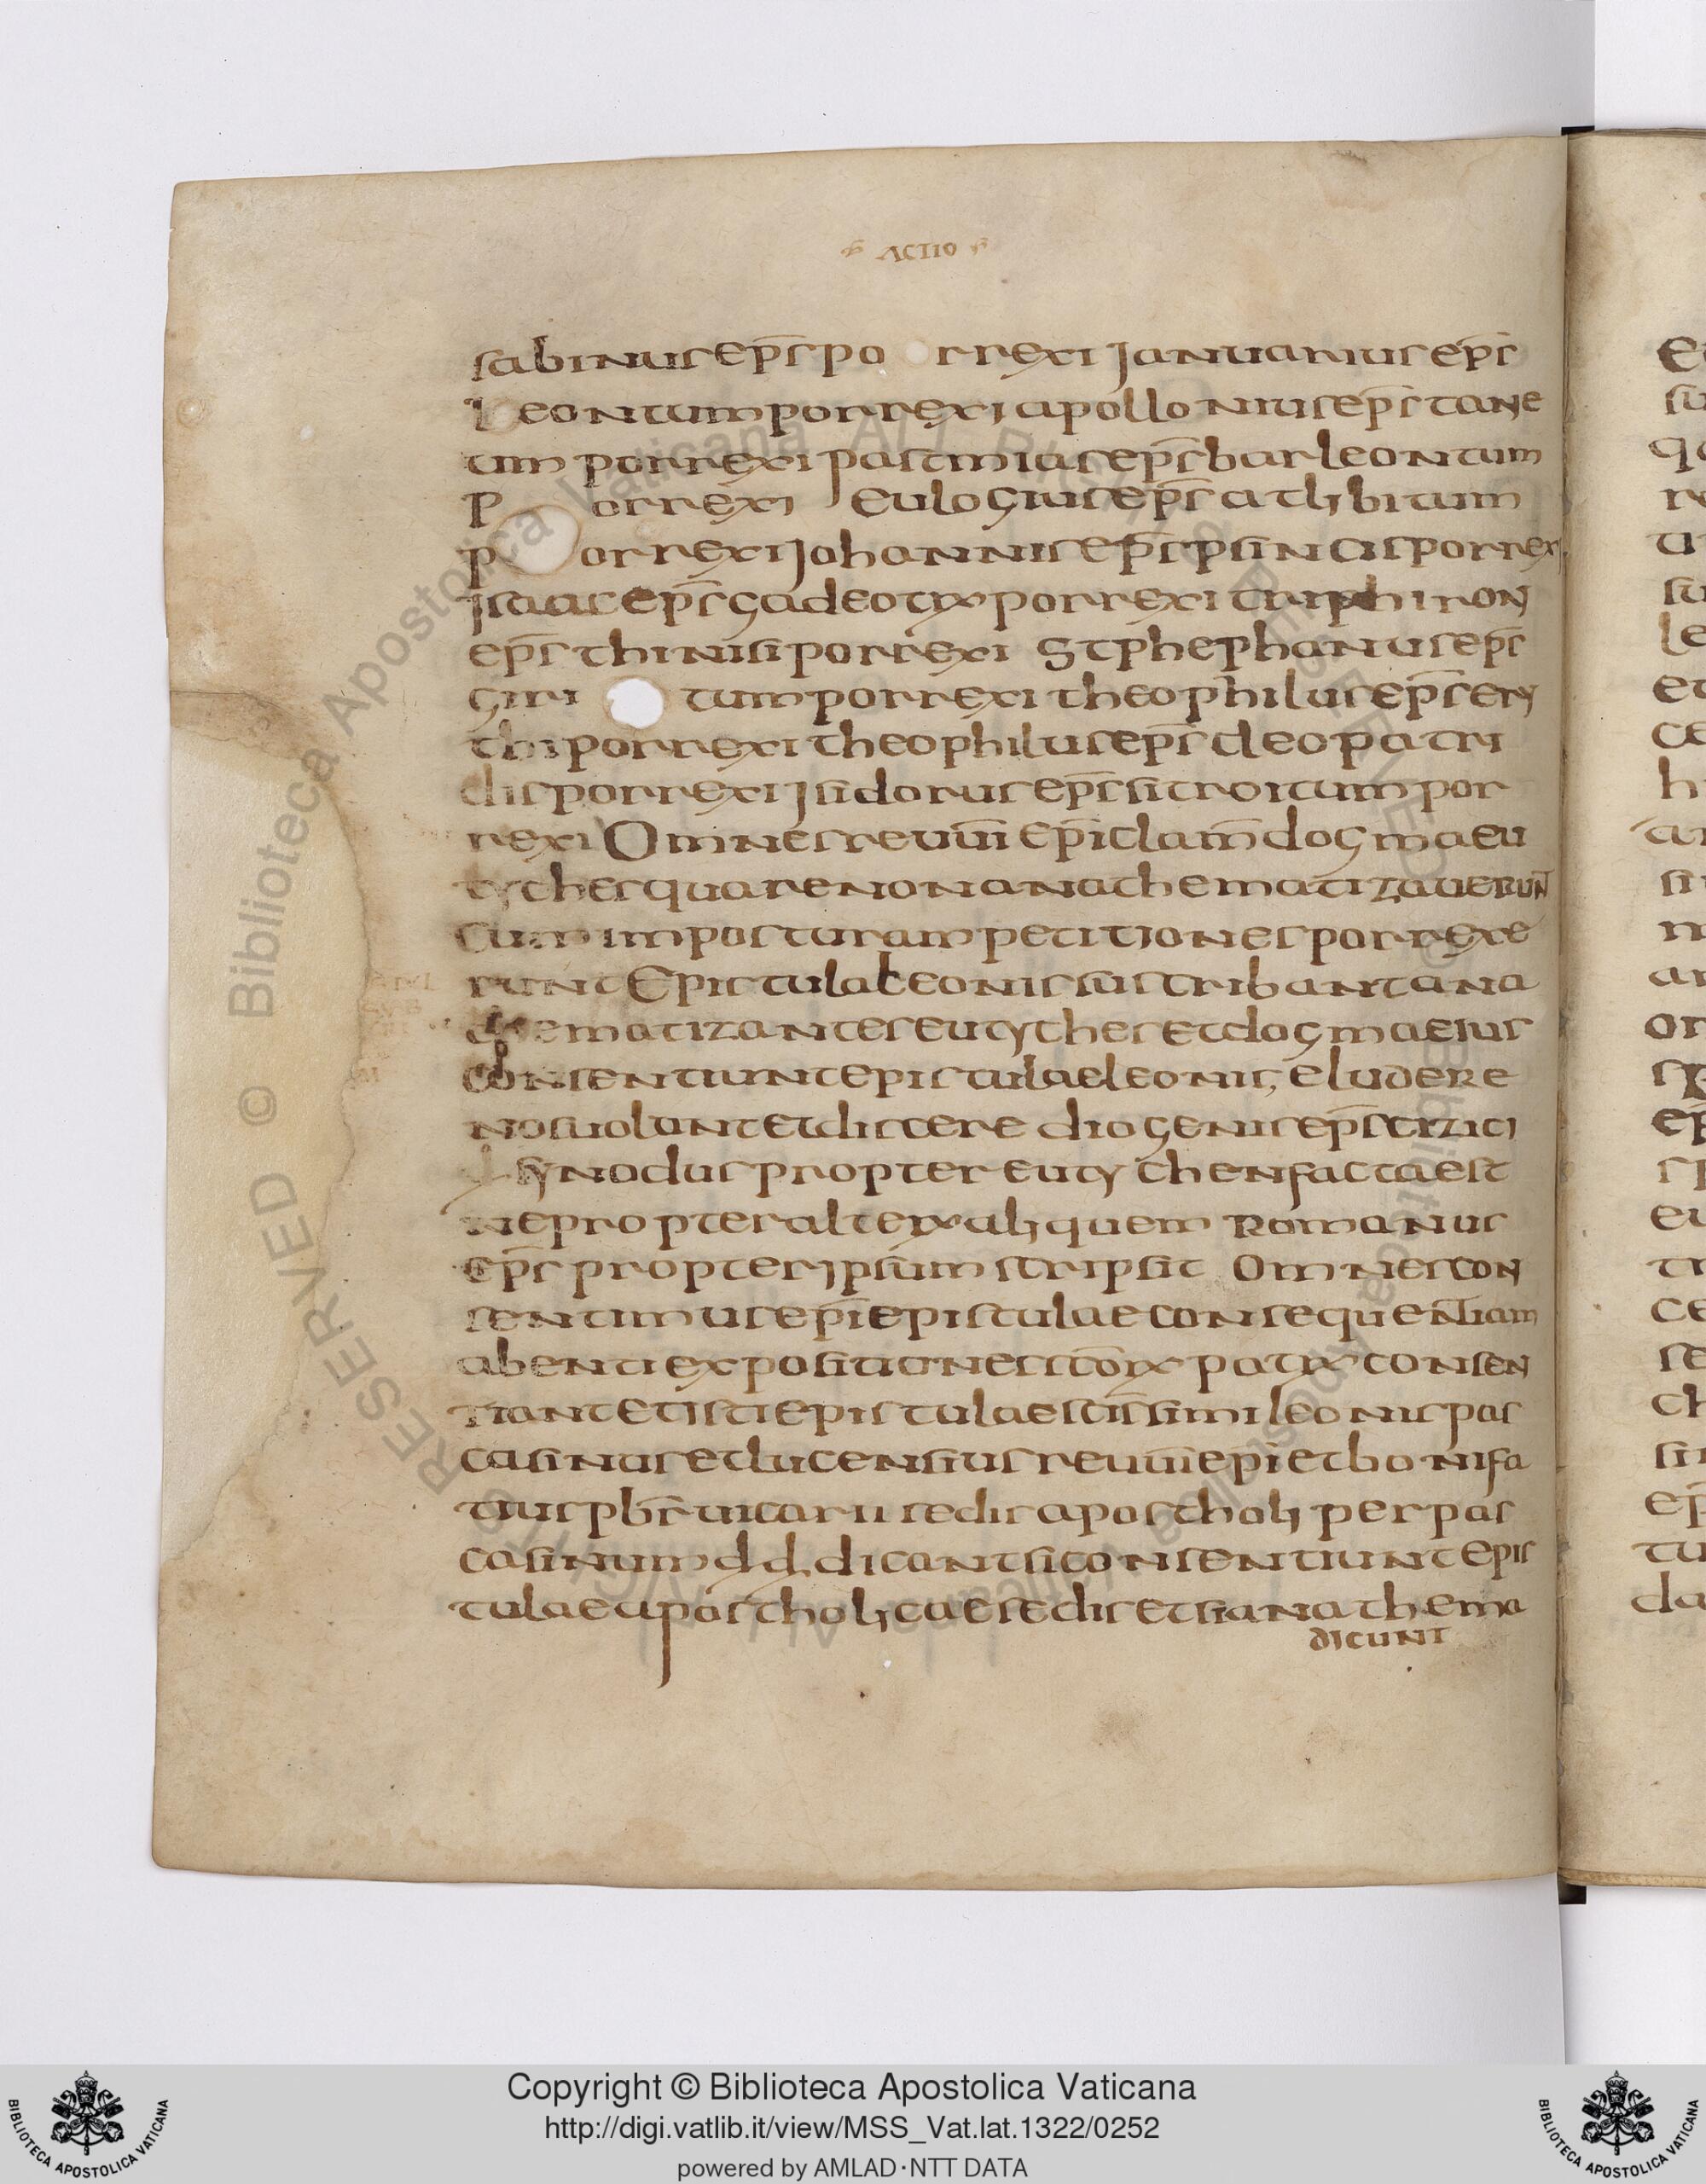 ACTIO
sabinus ep̄s porrexi januarius ep̄s
leontum porrexi apollonius ep̄s tane
tum porrexi pasimias ep̄s barleontum
porrexi eulogius ep̄s atlibitum
porrexi johannis ep̄s psincis porrexi
isaac ep̄s
ep̄s thinisi porrexi Stphephanus ep̄s
giri tum porrexi theophilus ep̄s ery
thi porrexi theophilus ep̄s cleopatri
dis porrexi isidorus ep̄s sitroitum por
rexi Omnes reuūi ep̄i clam̄ dogma eu
tyches quare non anathematizauerun̄
cum imposturam petitiones porrexe
runt Epistula leonis suscribant ana
thematizantes eutyches et dogma eius
consentiunt epistulae leonis, eludere
nos uolunt et discere diogenis ep̄s cizici
synodus propter eutychen facta est
ne propter alterx aliquem Romanus
ep̄s propter ipsum scripsit Omnes con
sentimus ep̄i epistulae consequentiam
abenti expositiones sc̄orx patrx consen
tiant et isti epistulae sc̄issimi leonis pas
casinus et lucensius reuūi ep̄i et bonifa
tius pb̄r uicarii sedis apostholi per pas
casinum dd, dicant si consentiunt epis
tulae apostholicae sedis et si anathema
dicunt
Copyright © Biblioteca Apostolica Vaticana
http://digi.vatlib.it/view/MSS_Vat.lat.1322/0252
powered by AMLAD·NTT DATA
BIBLIOTECA APOSTOLICA VATICANA
BIBLIOTECA APOSTOLICA VATICANA